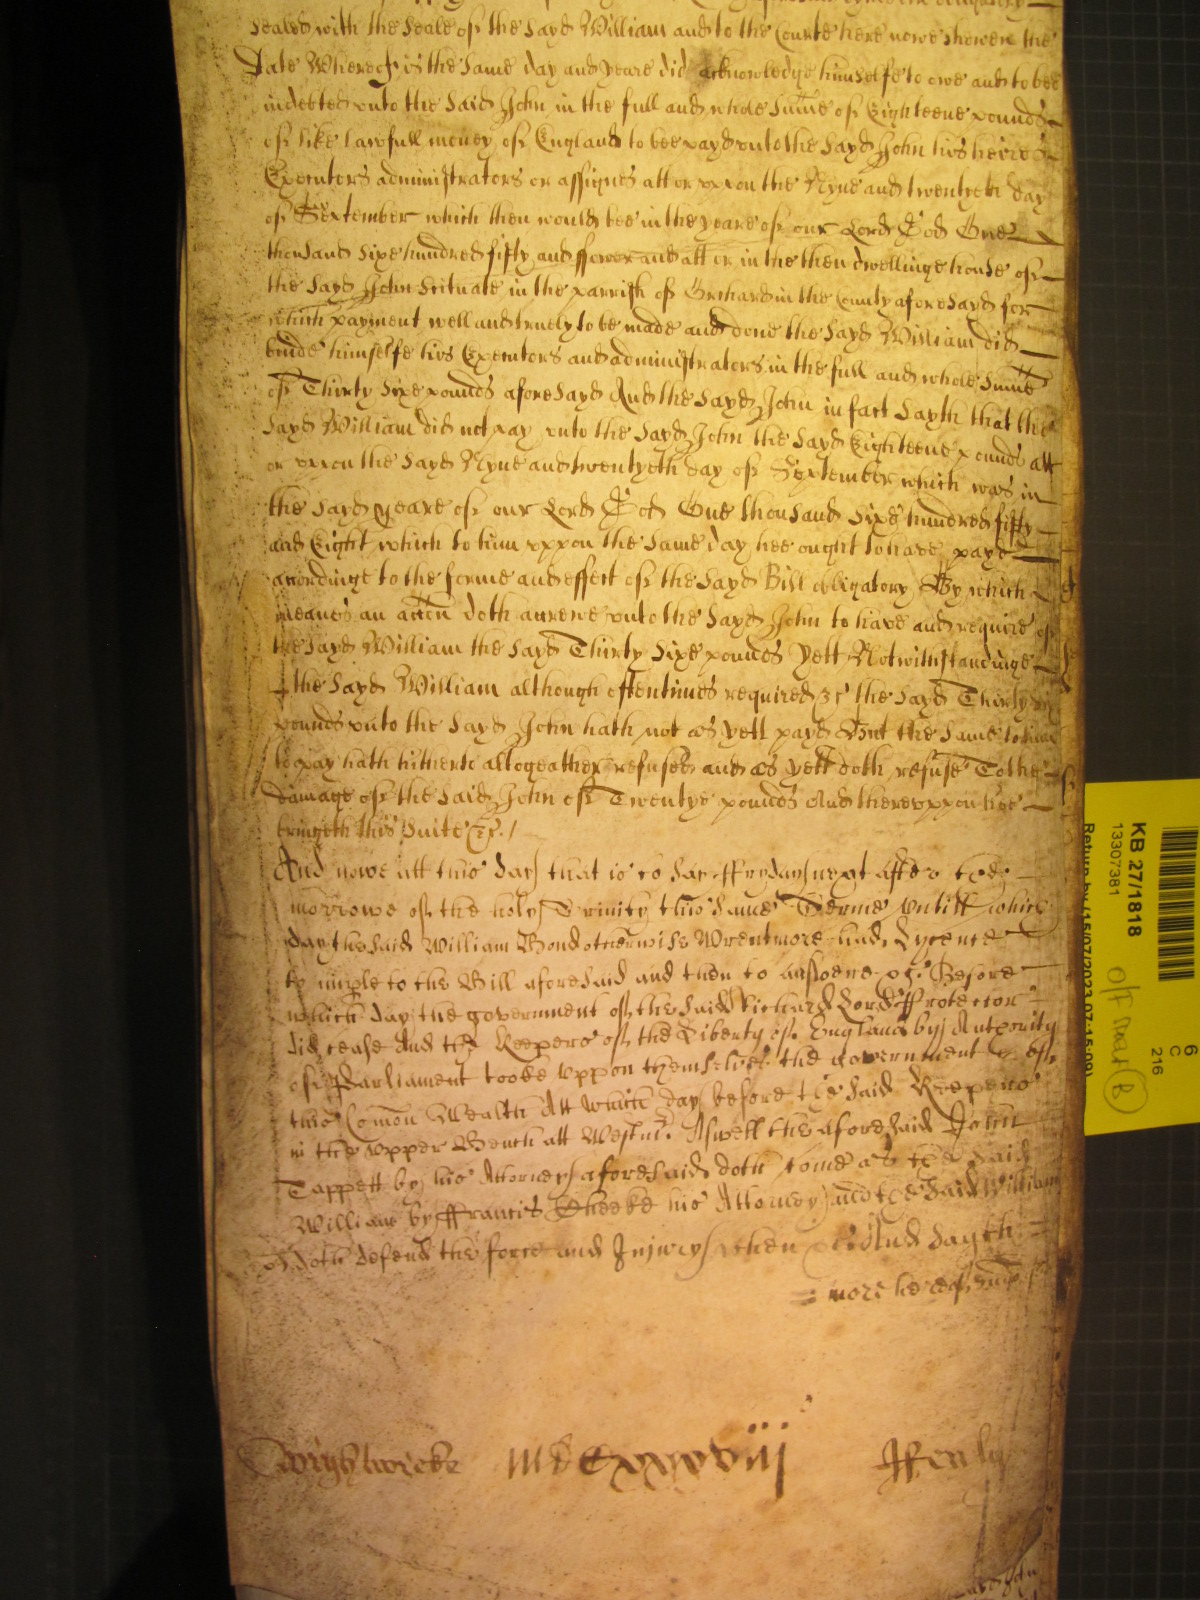 Sealed with the Seale of the Sayd William and to the Courte here nowe shewen the
Date Whereof is the same day and yeare did acknowledge himselfe to owe and to bee
indebted unto the Said John in the full and whole Sume of Eighteene pounds
of like lawfull money of England to bee payd unto the Sayd John his heires
Executors administrators or assignes att or uppon the Nyne and twentyeth day
of September which then would bee in the yeare of our Lord God One
thousand Sixe hundred fifty and and att or in the then dwellinge house of
the Sayd John Scituate in the parrish of Orchard in the County aforeSayd for
which payment well and truely to be made and done the Sayd William did
binde himselfe his Executors and administrators in the full and whole Sume
of Thirty Sixe pounds aforeSayd And the Sayd John in fact Sayth that the
Sayd William did not pay unto the Sayd John the Sayd Eighteene pounds att
or uppon the Sayd Nyne and twentyeth day of September which was in
the Sayd yeare of our Lord God One thousand Sixe hundred fifty
and Eight which to him uppon the Same day hee ought to have payd
accordinge to the forme and effect of the Sayd Bill obligatory By which
meanes an accōn doth accrewe unto the Sayd John to have and require of
the Sayd William the Sayd Thirty Sixe pounds Yett Notwithstandinge
the Sayd William although oftentimes required &c the Sayd Thirty six
pounds unto the Sayd John hath not as yett payd But the Same to him
to pay hath hitherto altogeather refused and as yett doth refuse To the
damage of the Said John of Twentye pounds And thereuppon hee
bringeth this Suite &c /
And nowe att this day that is to Say ffryday next after the
morrowe of the holy Trinity this Same Terme Untill which
day the said William Bond otherwise Wrentmore had Lycence
to imple to the Bill aforesaid and then to answere &c Before
which day the government of the said Richard Lord Protector
did cease And the Keepers of the Liberty of England by Authority
of Parliament tooke uppon themselves the Government of
this Comon Wealth Att which day before the said Keepers
in the upper Bench att Westm̄ Aswell the aforesaid John
Tappett by his Attorney aforesaid doth come as the Said
William by ffrancis Cheeke his Attorney and the Said William
doth defend the force and Injury when &c And Sayth
1818
KB 27/1818
13307381
6
C
216